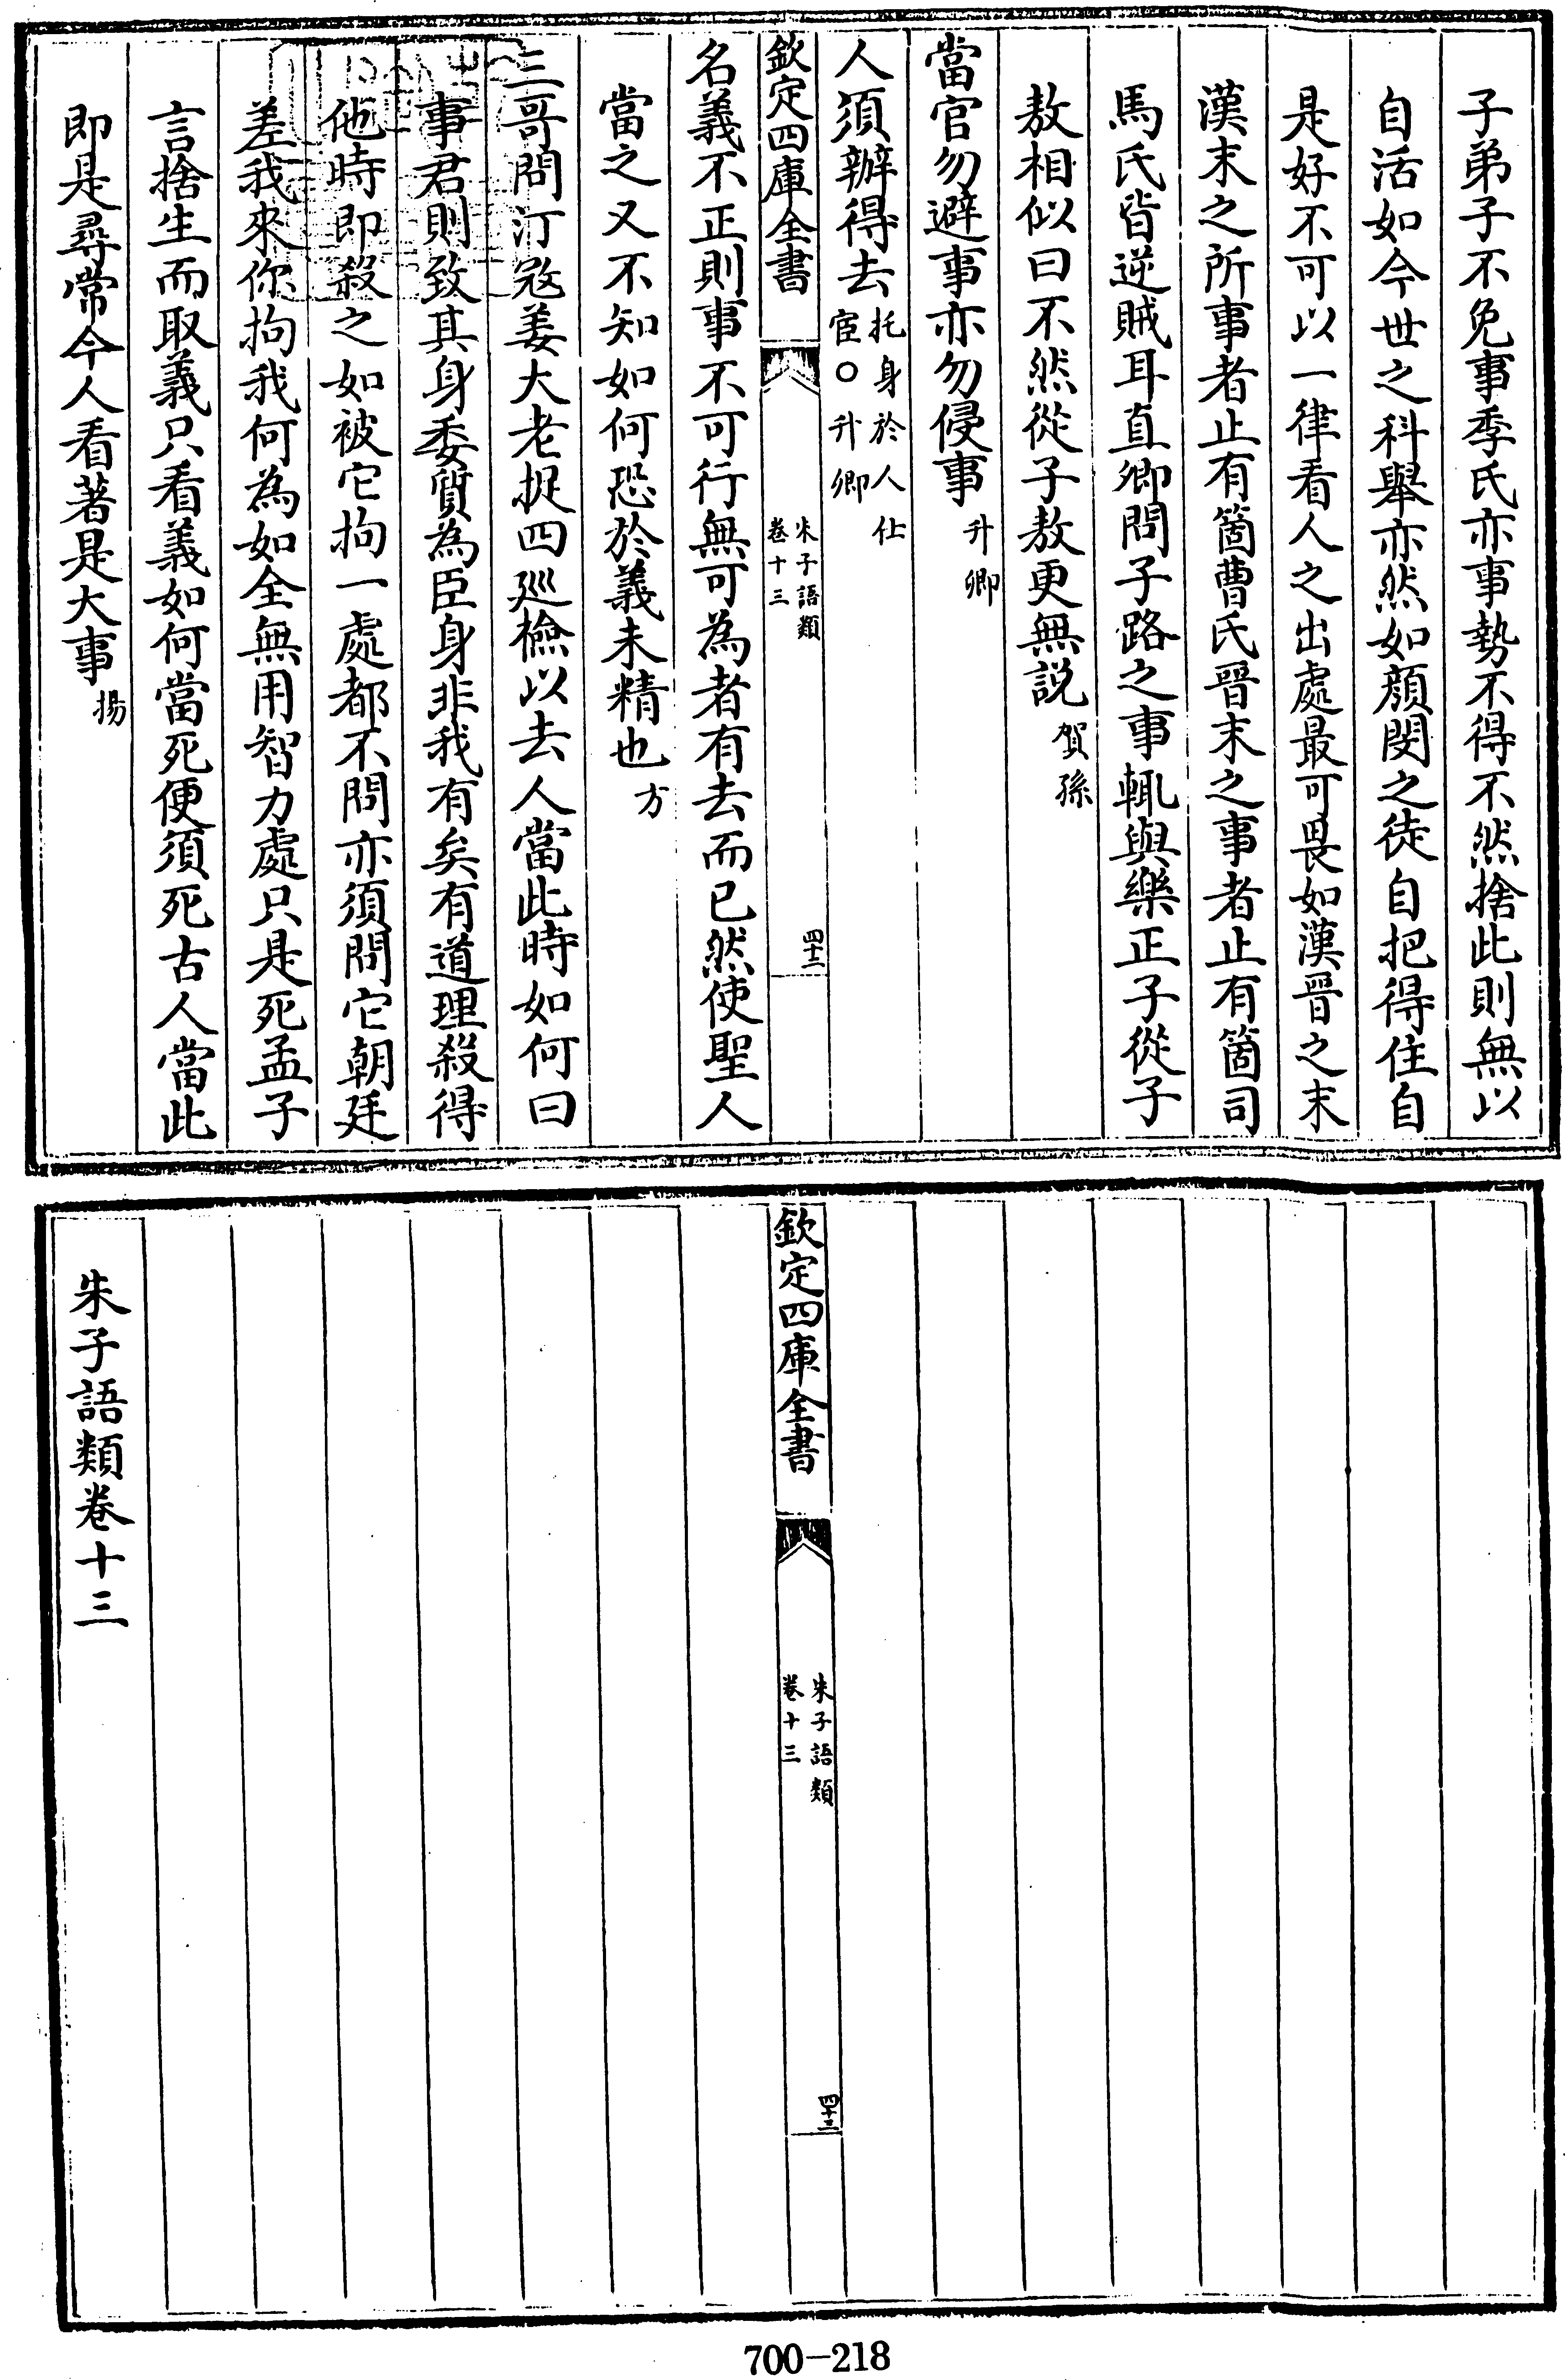 子弟子不免事季氏亦事勢不得不然捨此則無以
自活如今世之科舉亦然如顔閔之徒自把得住自
是好不可以一律看人之出處最可畏如漢晉之末
漢末之所事者止有箇曹氏晉末之事者止有箇司
馬氏皆逆賊耳直卿問子路之事輒與樂正子從子
敖相似曰不然從子敖更無説賀孫
當官勿避事亦勿侵事升卿
人須辦得去托身於人仕宦〇升卿
欽定四庫全書
朱子語類
卷十三
四十二
名義不正則事不可行無可為者有去而已然使聖人
當之又不知如何恐於義未精也方
三哥問汀宼姜大老捉四廵檢以去人當此時如何曰
事君則致其身委質為臣身非我有矣有道理殺得
他時即殺之如被它拘一處都不問亦須問它朝廷
差我來你拘我何為如全無用智力處只是死孟子
言捨生而取義只看義如何當死便須死古人當此
即是尋常今人看著是大事揚
欽定四庫全書
朱子語類
卷十三
四十三
朱子語類卷十三
700-218